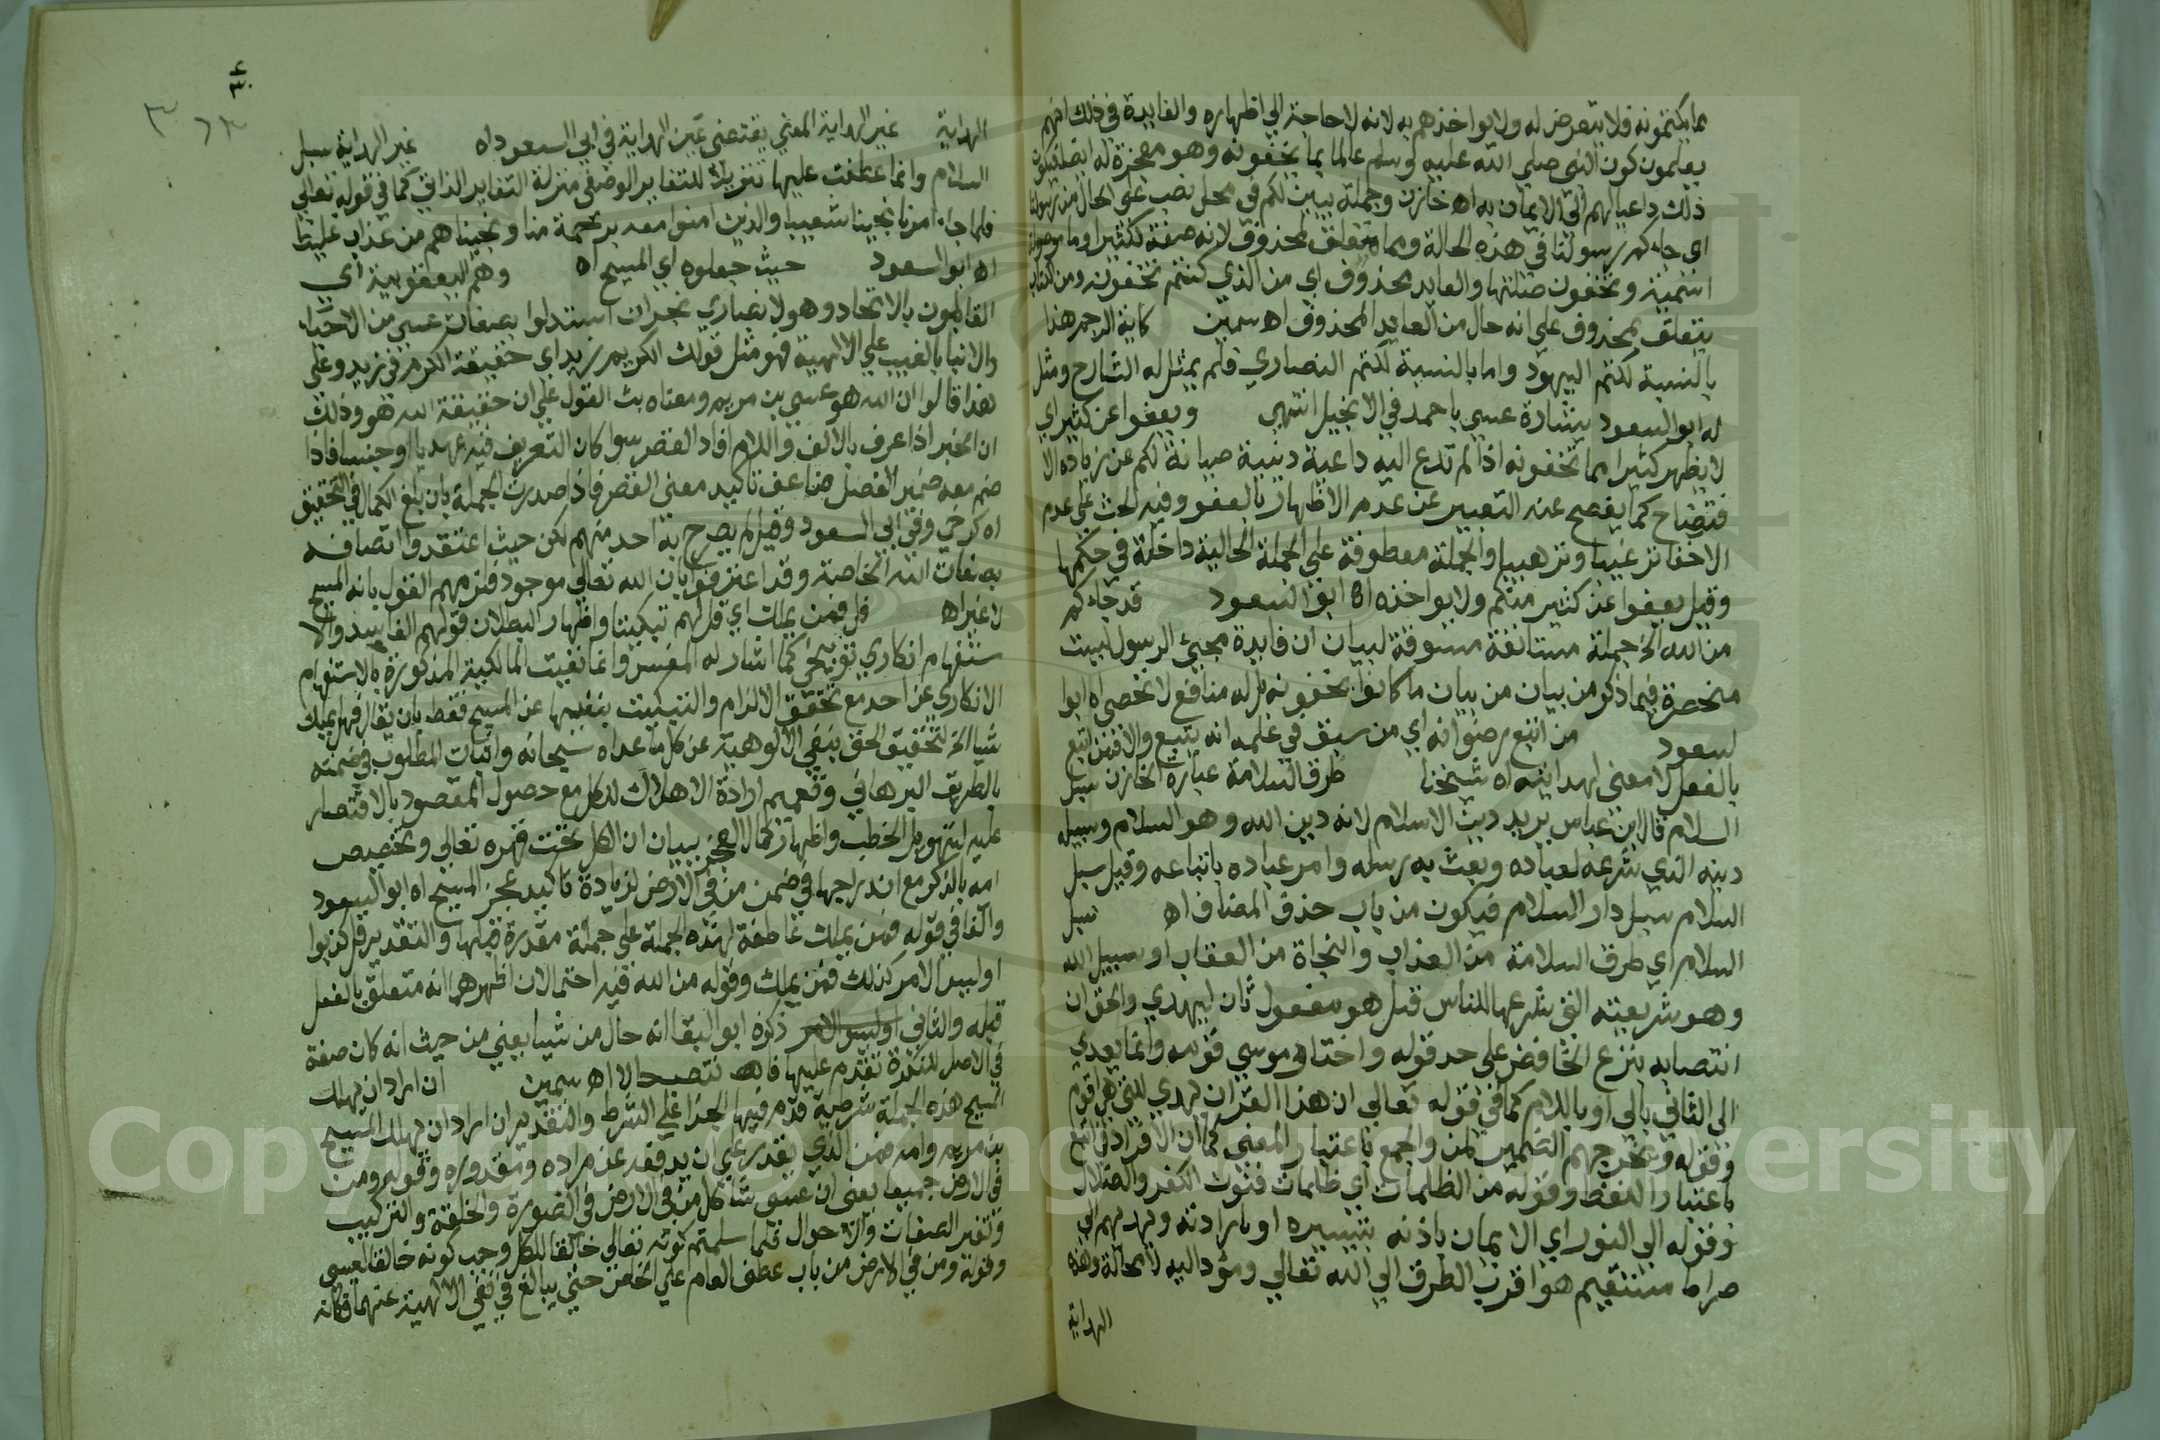 مما يكتمونه فلا يتعرض له ولا يواخذهم به لانه لا حاجة الي اظهاره والفايدة في ذلك انهم
يعلمون كون النبي صلي الله عليه وسلم عالما بما يخفونه وهو معجزة له ايضا فيكون
ذلك داعيا لهم الي الايمان به اه خازن وجملة يبين لكم في محل نصب علي الحال من رسولنا
اي جاءكم رسولنا في هذه الحالة ومما متعلق بمحذوف لانه صفة لكثيرا وما موصولة
اسمية وتخفون صلتها والعايد محذوف اي من الذي كنتم تخفونه ومن الكتاب
يتعلق بمحذوف علي انه حال من العايد المحذوف اه سمين كاية الرجم هذا
بالنسبة لكتم اليهود واما بالنسبة لكتم النصاري فلم يمثل له الشارح ومثل
له ابو السعود ببشارة عيسي باحمد في الانجيل انتهي ويعفوا عن كثير اي
لا يظهر كثيرا مما تخفونه اذا لم تدع اليه داعية دينية صيانة لكم عن زيادة الا
فتضاح كما يفصح عنه التعبير عن عدم الاظهار بالعفو وفيه الحث علي عدم
الاخفا ترغيبا وترهيبا والجملة معطوفة علي الجملة الحالية داخلة في حكمها
وقيل يعفوا عن كثير منكم ولا يواخذه اه ابو السعود قد جاءكم
من الله الخ جملة مستانفة مسوقة لبيان ان فايدة مجيئ الرسول ليست
منحصرة فيما ذكر من بيان من بيان ما كانوا يخفونه بل له منافع لا تحصي اه ابوا
لسعود من اتبع رضوانه اي من سبق في علمه انه يتبع والا فمن اتبع
بالفعل لا معني لهدايته اه شيخنا طرق السلامة عبارة الخازن سبل
السلام قال ابن عباس يريد دين الاسلام لانه دين الله وهو السلام وسبيله
دينه الذي شرعه لعباده وبعث به رسله وامر عباده باتباعه وقيل سبل
السلام سبل دار السلام فيكون من باب حذف المضاف اه سبل
السلام اي طرق السلامة من العذاب والنجاة من العقاب او سبيل الله
وهو شريعته التي شرعها للناس قيل هو مفعول ثان ليهدي والحق ان
انتصابه بنزع الخافض علي حد قوله واختار موسي قومه وانما يعدي
الي الثاني بالي او باللام كما في قوله تعالي ان هذا القران يهدي للتي هي اقوم
وقوله ويخرجهم الضمير لمن والجمع باعتبار المعني كما ان الافراد في اتبع
باعتبار اللفظ وقوله من الظلمات اي ظلمات فنون الكفر والضلال
وقوله الي النور اي الايمان باذنه بتيسيره او بارادته ويهديهم الي
صراط مستقيم هو اقرب الطرق الي الله تعالي ومؤد اليه لا محالة وهذه
الهداية
الهداية عين الهداية المعني يقتضي عين الهداية في ابي السعود اه غير الهداية سبل
السلام وانما عطفت عليها تنزيلا للتغاير الوصفي منزلة التغاير الذاتي كما في قوله تعالي
فلما جاء امرنا نجينا شعيبا والذين امنوا معه برحمة منا ونجيناهم من عذاب غليظ
اه ابو السعود حيث جعلوه اي المسيح اه وهم اليعقوبية اي
القايلون بالاتحاد وهولا نصاري نجران استدلوا بصفات عيسي من الاحيا
والانبا بالغيب علي الالهية فهو مثل قولك الكريم زيد اي حقيقة الكرم في زيد وعلي
هذا قالوا ان الله هو عيسي بن مريم ومعناه بث القول علي ان حقيقة الله هو وذلك
ان الخبر اذا عرف بالالف واللام افاد القصر سوا كان التعريف فيه عهديا او جنسيا فاذا
ضم معه ضمير الفصل ضاعف تاكيد معني القصر فاذا صدرت الجملة بان بلغ الكمال في التحقيق
اه كرخي وفي ابي السعود وقيل لم يصرح به احد منهم لكن حيث اعتقدوا اتصافه
بصفات الله الخاصة وقد اعترفوا بان الله تعالي موجود فلزمهم القول بانه المسيح
لا غير اه قل فمن يملك اي قل لهم تبكيتا واظهار البطلان قولهم الفاسد والا
ستفهام انكاري توبيخي كما اشار له المفسر وانما نفيت المالكية المذكورة بالاستفهام
الانكاري عن احد مع تحقق الالزام والتبكيت بنفيها عن المسيح فقط بان يقال فهل يملك
شيا الخ لتحقيق الحق بنفي الالوهية عن كل ما عداه سبحانه واثبات المطلوب في ضمنه
بالطريق البرهاني وتعميم ارادة الاهلاك للكل مع حصول المقصود بالاقتصار
عليه لتهويل الخطب واظهار كمال العجز ببيان ان الكل تحت قهره تعالي وتخصيص
امه بالذكر مع اندراجها في ضمن من في الارض لزيادة تاكيد عجز المسيح اه ابو السعود
والفا في قوله فمن يملك عاطفة لهذه الجملة علي جملة مقدرة قبلها والتقدير قل كذبوا
او ليس الامر كذلك فمن يملك وقوله من الله فيه احتمالان اظهرهما انه متعلق بالفعل
قبله والثاني اوليس الامر ذكره ابو البقا انه حال من شيا يعني من حيث انه كان صفة
في الاصل للنكرة تقدم عليها فانتصب حالا اه سمين ان اراد ان يهلك
المسيح هذه الجملة شرطية قدم فيها الجزا علي الشرط والتقدير ان اراد ان يهلك المسيح
بن مريم وامه فمن الذي يقدر علي ان يدفعه عن مراده ومقدوره وقوله ومن
في الارض جميعا يعني ان عيسي شاكل من في الارض في الصورة والخلقة والتركيب
وتغير الصفات والاحوال فلما سلمتم كونه تعالي خالقا للكل وجب كونه خالقا لعيسي
وقوله ومن في الارض من باب عطف العام علي الخاص حتي يبالغ في نفي الالهية عنهما فكانه
Copyright © King Saud University